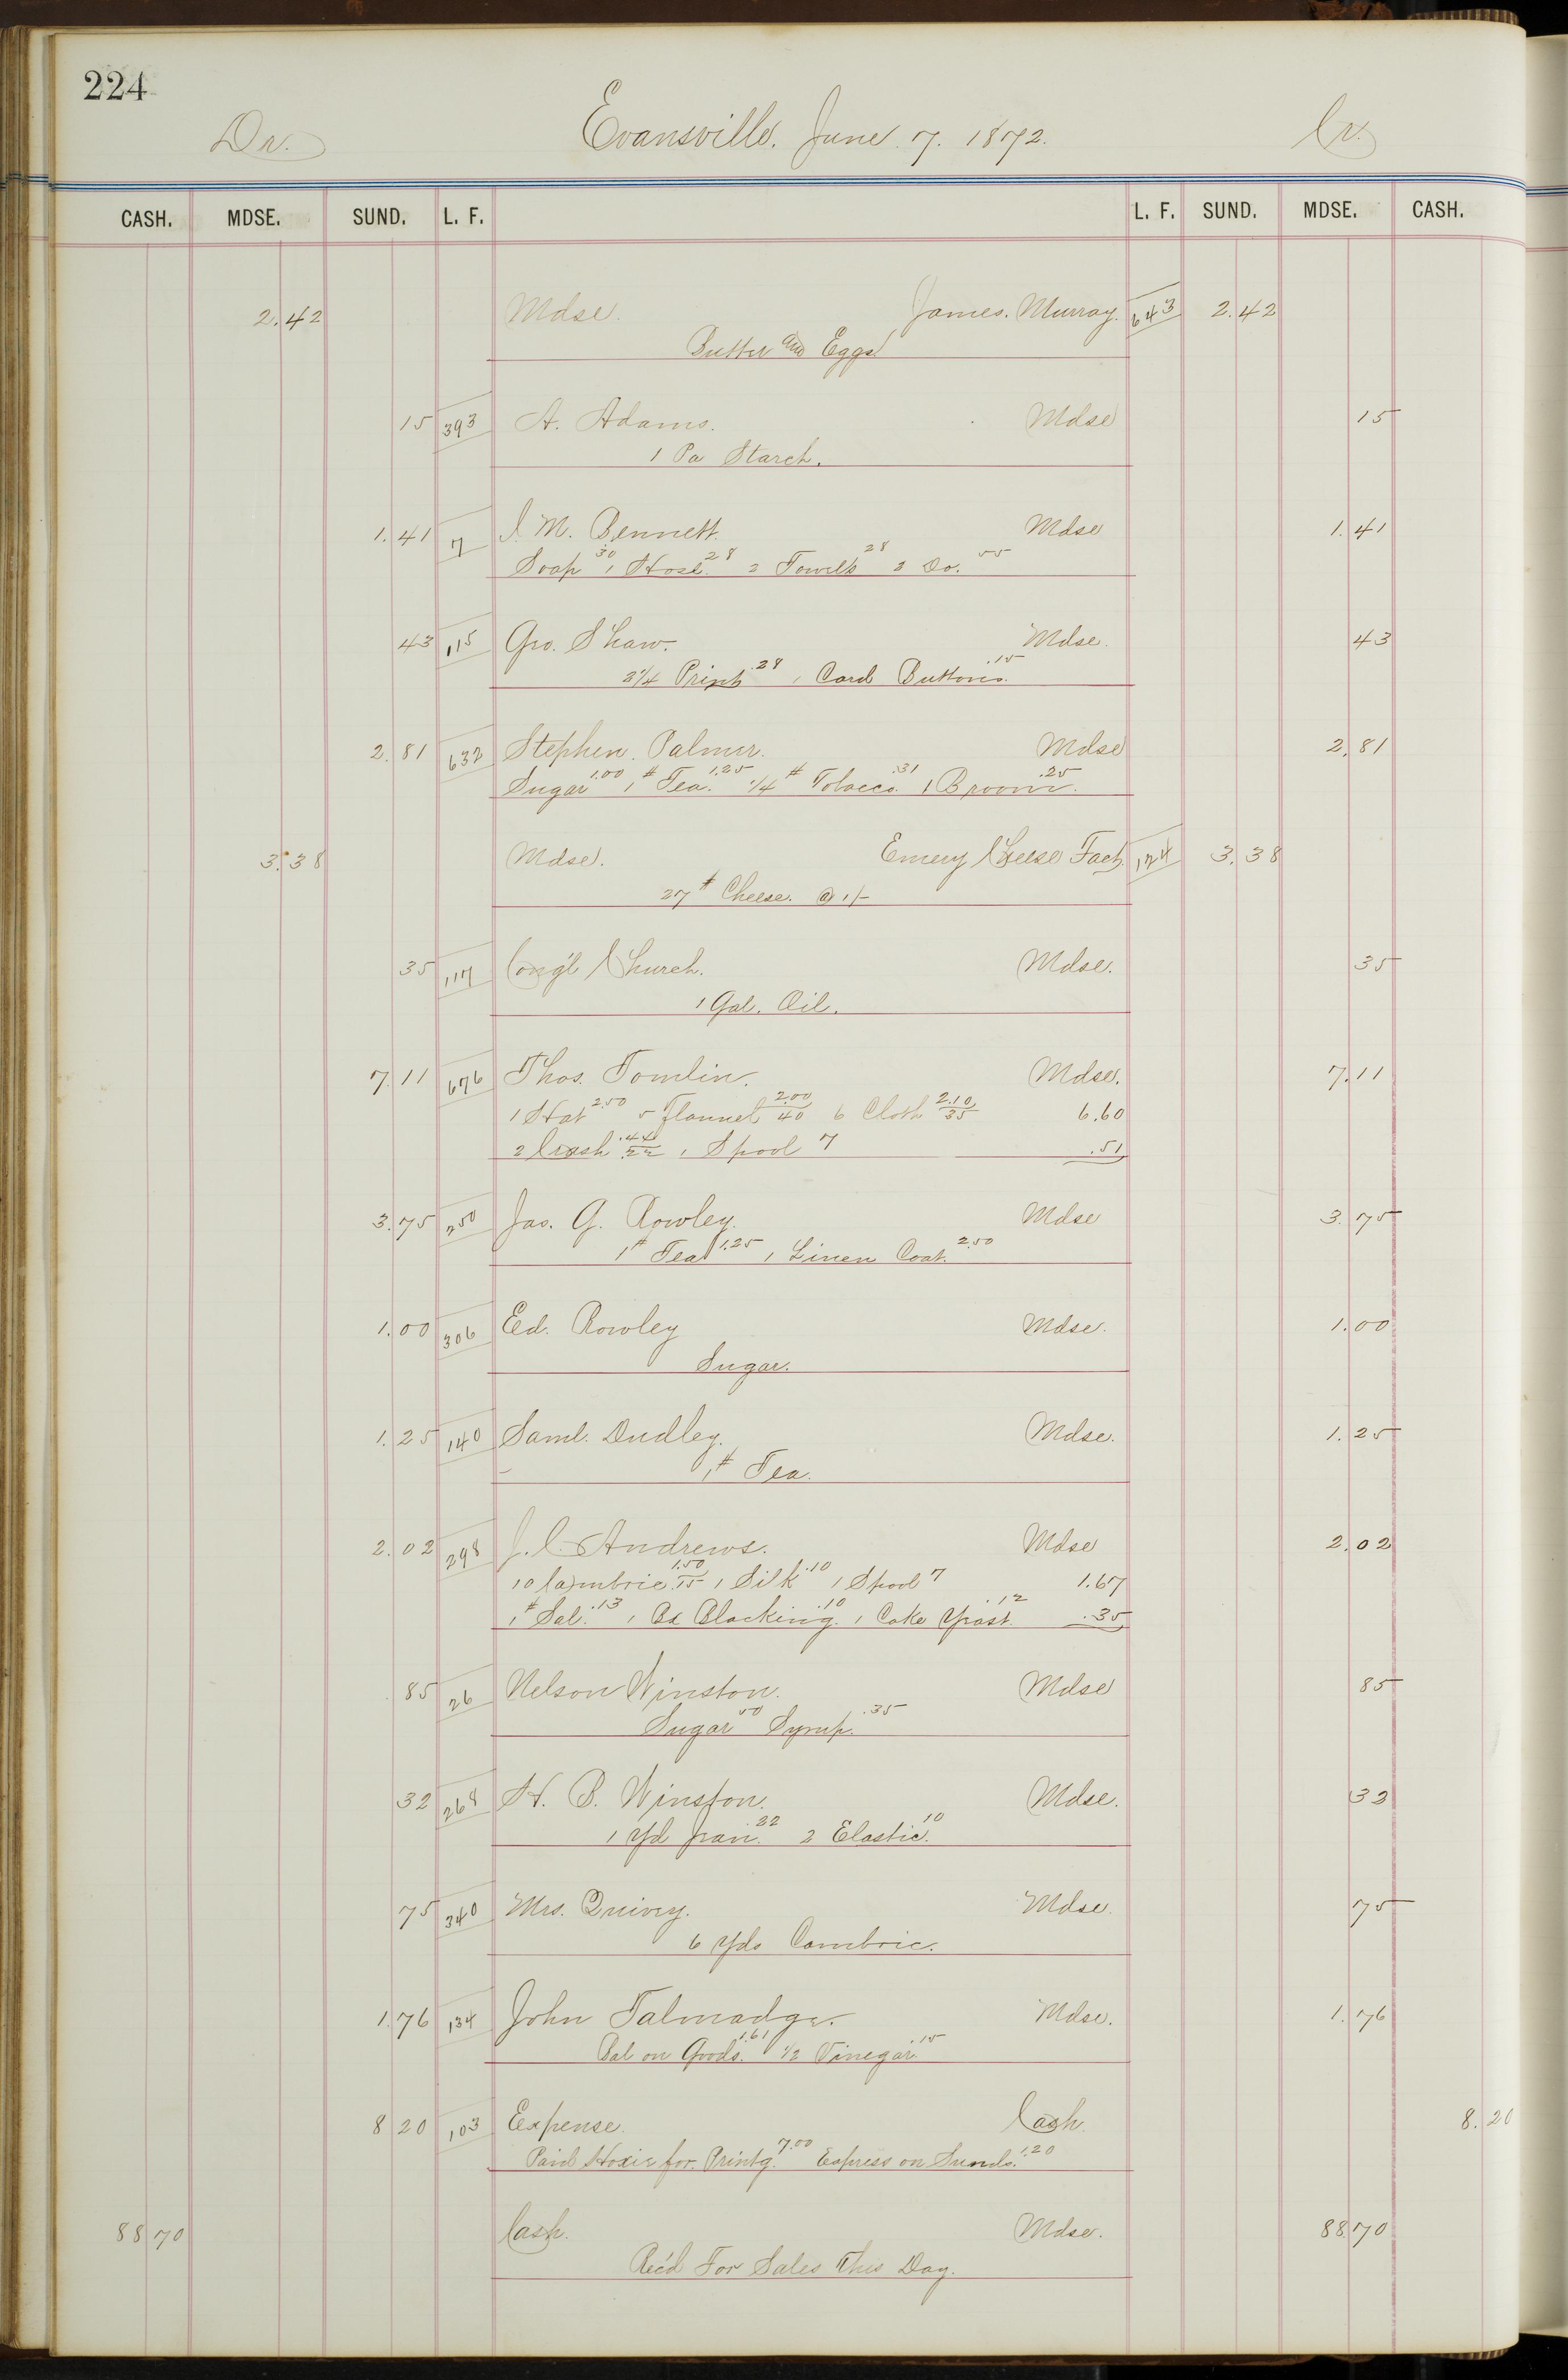 224
Dr. Evansville. June 7. 1872. Cr.
CASH. MDSE. SUND. L. F. L. F. SUND. MDSE. CASH.
2.42 Mdse. James. Murray. 643 2.42
Butter and Eggs
15 393 A. Adams. Mdse 15
1 Pa Starch.
1.41 7 I. M. Bennett. Mdse 1.41
Soap 30 1 Hose. 28 2 Towels 28 2 Do. 55
43 115 Geo. Shaw. Mdse. 43
2 1/4 Print .28 1 Card Buttons. .15
2.81 632 Stephen. Palmer. Mdse 2.81
Sugar 1.00 1 # Tea. 1.25 1/4 # Tobacco. .31 1 Broom. .25
3.38 Mdse. Emery Cheese Fact. 124 3.38
27 # Cheese. @ 1/-
35 117 Cong'l Church. Mdse. 35
1 Gal. Oil.
7.11 676 Thos. Tomlin. Mdse. 7.11
1 Hat 2.50 5 Flannel 2.00/40 6 Cloth 2.10/35 6.60
2 Crash .44/.22 1 Spool 7 .51
3.75 250 Jas. G. Rowley. Mdse 3.75
1 # Tea 1.25 1 Linen Coat. 2.50
1.00 306 Ed. Rowley Mdse. 1.00
Sugar.
1.25 140 Saml. Dudley. Mdse. 1.25
1 # Tea.
2.02 298 J. C. Andrews. Mdse 2.02
10 Cambric. 1.50/15 1 Silk .10 1 Spool 7 1.67
1 # Sal. .13 1 Bx Blacking. .10 1 Cake Yeast. .12 .35
85 26 Nelson Winston. Mdse 85
Sugar 50 Syrup. .35
32 268 H. B. Winston. Mdse. 32
1 Yd Jean. 22 2 Elastic. 10
75 340 Mrs. Quivey. Mdse. 75
6 Yds Cambric.
1.76 134 John Talmadge. Mdse. 1.76
Bal on Goods. 1.61 1/2 Vinegar. .15
8 20 103 Expense. Cash. 8.20
Paid Hoxie for. Printg. 7.00 Express on Sunds. 1.20
88 70 Cash. Mdse. 88.70
Rec'd For Sales This Day.